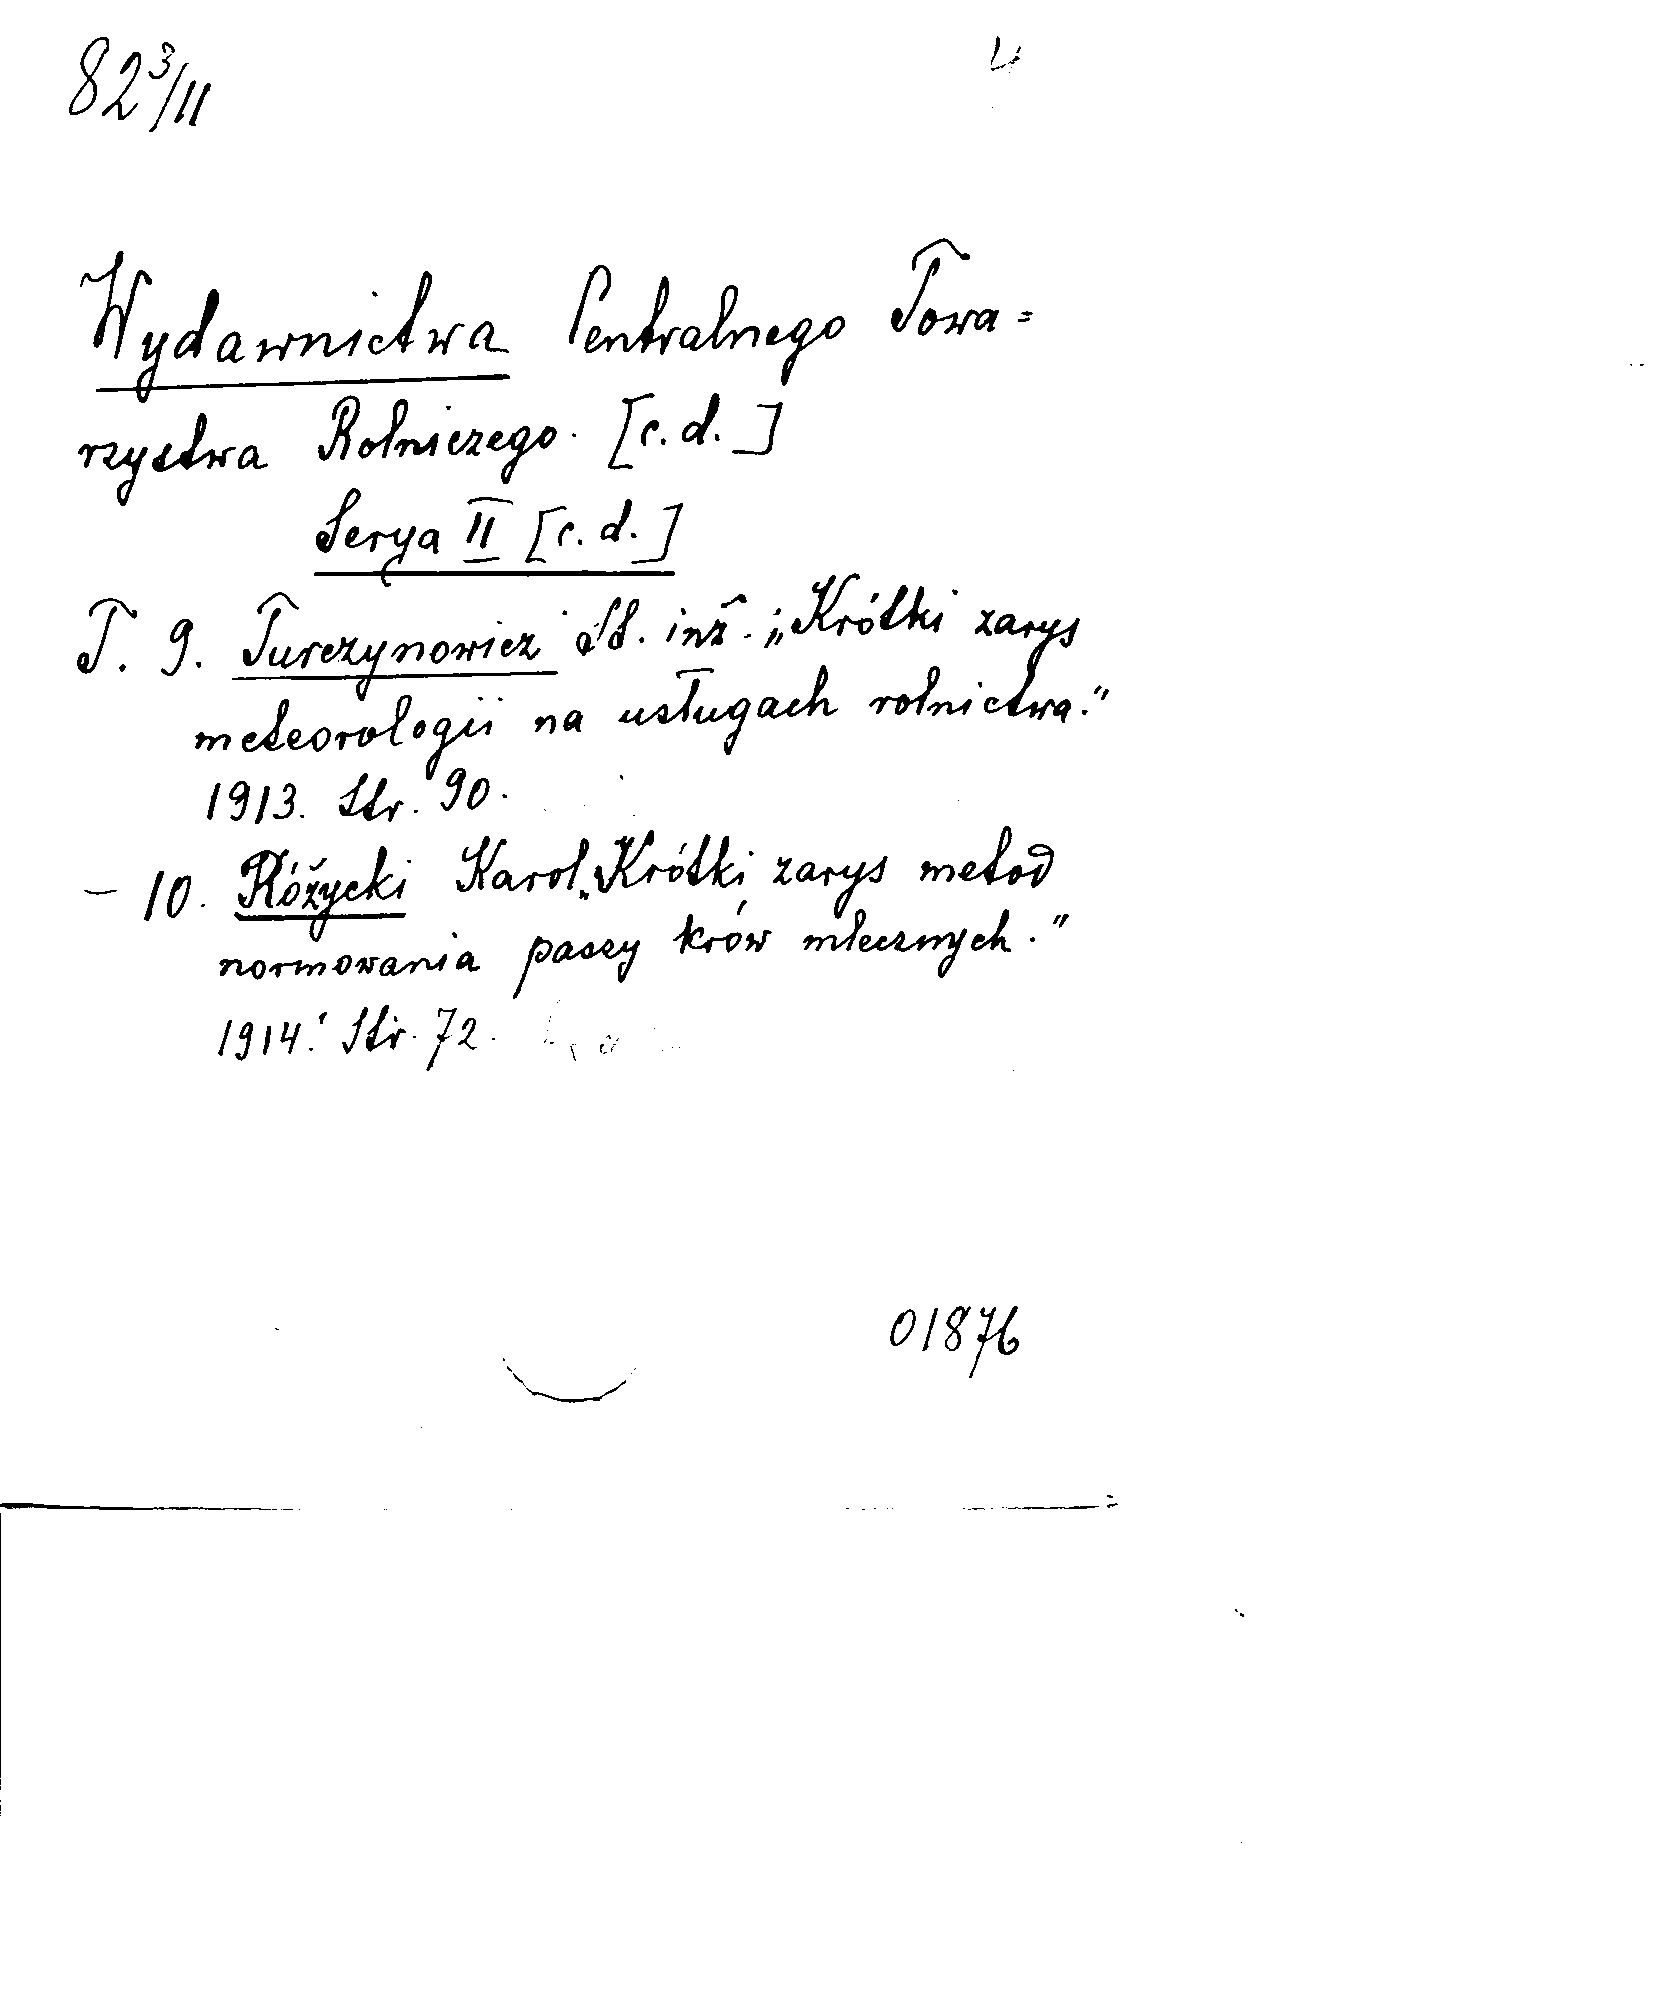 82 3/II 4
Wydawnictwa Centralnego Towa=
rzystwa Rolniczego. [c.d.]
Serya II [c.d.]
T. 9. Turczynowicz St. inż. „Krótki zarys
meteorologii na usługach rolnictwa."
1913. Str. 90.
– 10. Różycki Karol „Krótki zarys metod
normowania paszy krów mlecznych."
1914. Str. 72.
01876